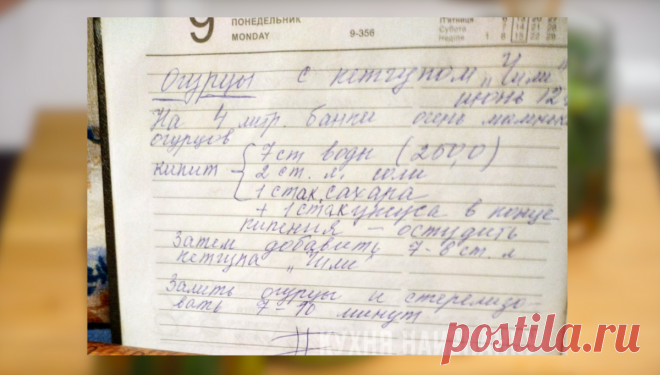 9
ПОНЕДЕЛЬНИК
MONDAY
9-356
Пятница
Суббота
Неделя
Огурцы с кетчупом „Чили"
июнь 12
На 4 литр. банки очень маленьк
огурцов
кипит
7 ст воды (250,0)
2 ст. л. соли
1 стак. сахара
+ 1 стак уксуса в конце
кипения — остудить
Затем добавить 7-8 ст. л
кетчупа „Чили"
Залить огурцы и стерилизо-
вать 7-10 минут.
КУХНЯ
postila.ru